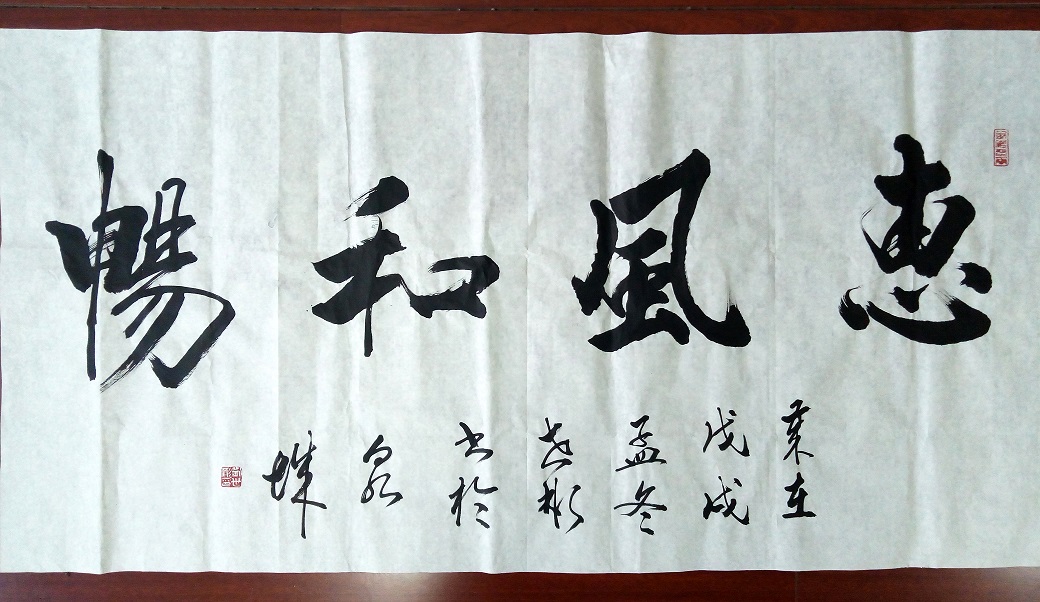 惠風和暢
戊戌
孟冬
世彬
書於
泉
城